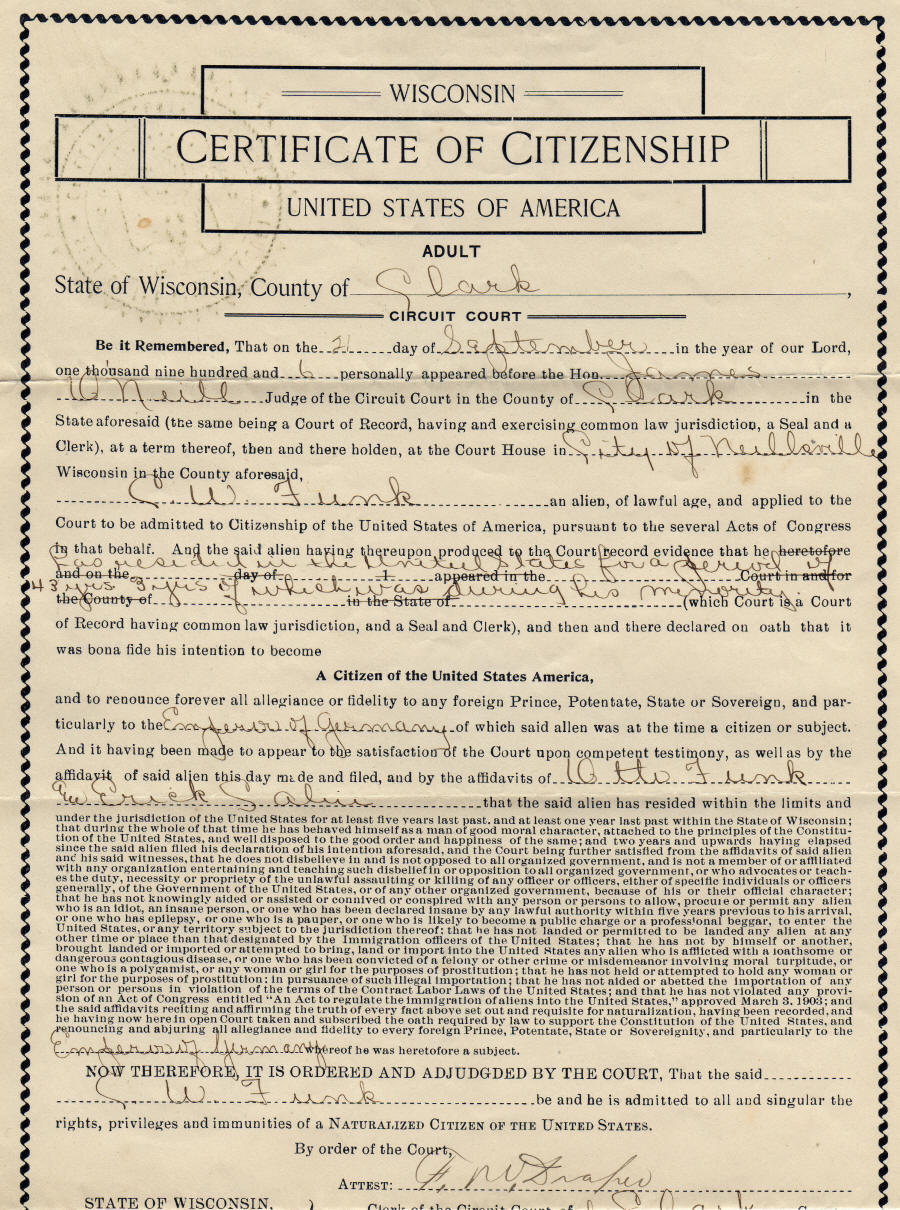 WISCONSIN
CERTIFICATE OF CITIZENSHIP
UNITED STATES OF AMERICA
ADULT
State of Wisconsin, County of Clark,
CIRCUIT COURT
Be it Remembered, That on the 21 day of September in the year of our Lord,
one thousand nine hundred and 6 personally appeared before the Hon. James
O'Neill Judge of the Circuit Court in the County of Clark in the
State aforesaid (the same being a Court of Record, having and exercising common law jurisdiction, a Seal and a
Clerk), at a term thereof, then and there holden, at the Court House in City of Neillsville
Wisconsin in the County aforesaid,
C. W. Funk an alien, of lawful age, and applied to the
Court to be admitted to Citizenship of the United States of America, pursuant to the several Acts of Congress
in that behalf. And the said alien having thereupon produced to the Court record evidence that he heretofore
has resided in the United States for a period of
and on the day of 1 appeared in the Court in and for
43 yrs 3 yrs of which was during his minority.
the County of in the State of (which Court is a Court
of Record having common law jurisdiction, and a Seal and Clerk), and then and there declared on oath that it
was bona fide his intention to become
A Citizen of the United States America,
and to renounce forever all allegiance or fidelity to any foreign Prince, Potentate, State or Sovereign, and par-
ticularly to the Emperor of Germany of which said alien was at the time a citizen or subject.
And it having been made to appear to the satisfaction of the Court upon competent testimony, as well as by the
affidavit of said alien this day made and filed, and by the affidavits of Otto Funk
Erick that the said alien has resided within the limits and
under the jurisdiction of the United States for at least five years last past. and at least one year last past within the State of Wisconsin;
that during the whole of that time he has behaved himself as a man of good moral character, attached to the principles of the Constitu-
tion of the United States, and well disposed to the good order and happiness of the same; and two years and upwards having elapsed
since the said alien filed his declaration of his intention aforesaid, and the Court being further satisfied from the affidavits of said alien
and his said witnesses, that he does not disbelieve in and is not opposed to all organized government, and is not a member of or affiliated
with any organization entertaining and teaching such disbelief in or opposition to all organized government, or who advocates or teach-
es the duty, necessity or propriety of the unlawful assaulting or killing of any officer or officers, either of specific individuals or officers
generally, of the Government of the United States, or of any other organized government, because of his or their official character;
that he has not knowingly aided or assisted or connived or conspired with any person or persons to allow, procure or permit any alien
who is an idiot, an insane person, or one who has been declared insane by any lawful authority within five years previous to his arrival,
or one who has epilepsy, or one who is a pauper, or one who is likely to become a public charge or a professional beggar, to enter the
United States, or any territory subject to the jurisdiction thereof; that he has not landed or permitted to be landed any alien at any
other time or place than that designated by the Immigration officers of the United States; that he has not by himself or another,
brought landed or imported or attempted to bring, land or import into the United States any alien who is afflicted with a loathsome or
dangerous contagious disease, or one who has been convicted of a felony or other crime or misdemeanor involving moral turpitude, or
one who is a polygamist, or any woman or girl for the purposes of prostitution; that he has not held or attempted to hold any woman or
girl for the purposes of prostitution: in pursuance of such illegal importation; that he has not aided or abetted the importation of any
person or persons in violation of the terms of the Contract Labor Laws of the United States; and that he has not violated any provi-
sion of an Act of Congress entitled "An Act to regulate the immigration of aliens into the United States," approved March 3, 1903; and
the said affidavits reciting and affirming the truth of every fact above set out and requisite for naturalization, having been recorded, and
he having now here in open Court taken and subscribed the oath required by law to support the Constitution of the United States, and
renouncing and abjuring all allegiance and fidelity to every foreign Prince, Potentate, State or Sovereignity, and particularly to the
Emperor of Germany whereof he was heretofore a subject.
NOW THEREFORE, IT IS ORDERED AND ADJUDGDED BY THE COURT, That the said
C. W. Funk be and he is admitted to all and singular the
rights, privileges and immunities of a NATURALIZED CITIZEN OF THE UNITED STATES.
By order of the Court,
ATTEST: F. M. Draper
STATE OF WISCONSIN,
Clerk of the Circuit Court of